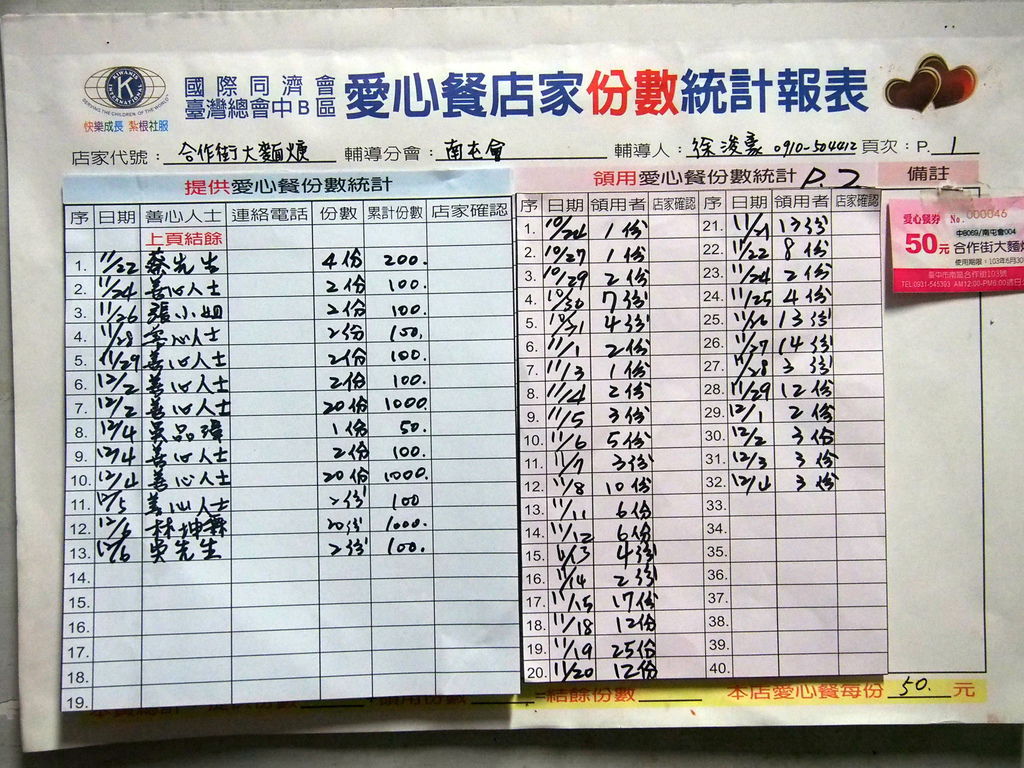 國際同濟會
臺灣總會中B區
愛心餐店家份數統計報表
KIWANIS INTERNATIONAL
SERVING THE CHILDREN OF THE WORLD
快樂成長 紮根社服
店家代號：合作街大麵焿 輔導分會：南屯會 輔導人：徐浚豪 0910-504412 頁次：P. 1
提供愛心餐份數統計
序 日期 善心人士 連絡電話 份數 累計份數 店家確認
上頁結餘
1. 11/22 蔡先生 4份 200.
2. 11/24 善心人士 2份 100.
3. 11/26 張小姐 2份 100.
4. 11/28 善心人士 2份 100.
5. 11/29 善心人士 2份 100.
6. 12/2 善心人士 2份 100.
7. 12/2 善心人士 20份 1000.
8. 12/4 吳品瑋 1份 50.
9. 12/4 善心人士 2份 100.
10. 12/4 善心人士 20份 1000.
11. 12/5 善心人士 2份 100
12. 12/6 林坤霖 20份 1000.
13. 12/6 吳先生 2份 100.
14.
15.
16.
17.
18.
19.
領用愛心餐份數統計 P.2
序 日期 領用者 店家確認
1. 10/24 1份
2. 10/27 1份
3. 10/29 2份
4. 10/30 7份
5. 10/31 4份
6. 11/1 2份
7. 11/3 1份
8. 11/4 2份
9. 11/5 3份
10. 11/6 5份
11. 11/7 3份
12. 11/8 10份
13. 11/11 6份
14. 11/12 6份
15. 11/13 4份
16. 11/14 2份
17. 11/15 17份
18. 11/18 12份
19. 11/19 25份
20. 11/20 12份
序 日期 領用者 店家確認
21. 11/21 13份
22. 11/22 8份
23. 11/24 2份
24. 11/25 4份
25. 11/26 13份
26. 11/27 14份
27. 11/28 3份
28. 11/29 12份
29. 12/1 2份
30. 12/2 3份
31. 12/3 3份
32. 12/4 3份
33.
34.
35.
36.
37.
38.
39.
40.
備註
愛心餐券 No. 000046
中8069/南屯會004
50元 合作街大麵
使用期限：103年6月30
臺中市南區合作街103號
TEL:0931-545393 AM12:00-PM6:00週日
=結餘份數 本店愛心餐每份 50. 元